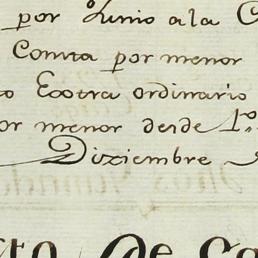 por Junio a la C
Consta por menor
o Extra ordinario
or menor desde 1º
Diziembre
cto De Ca